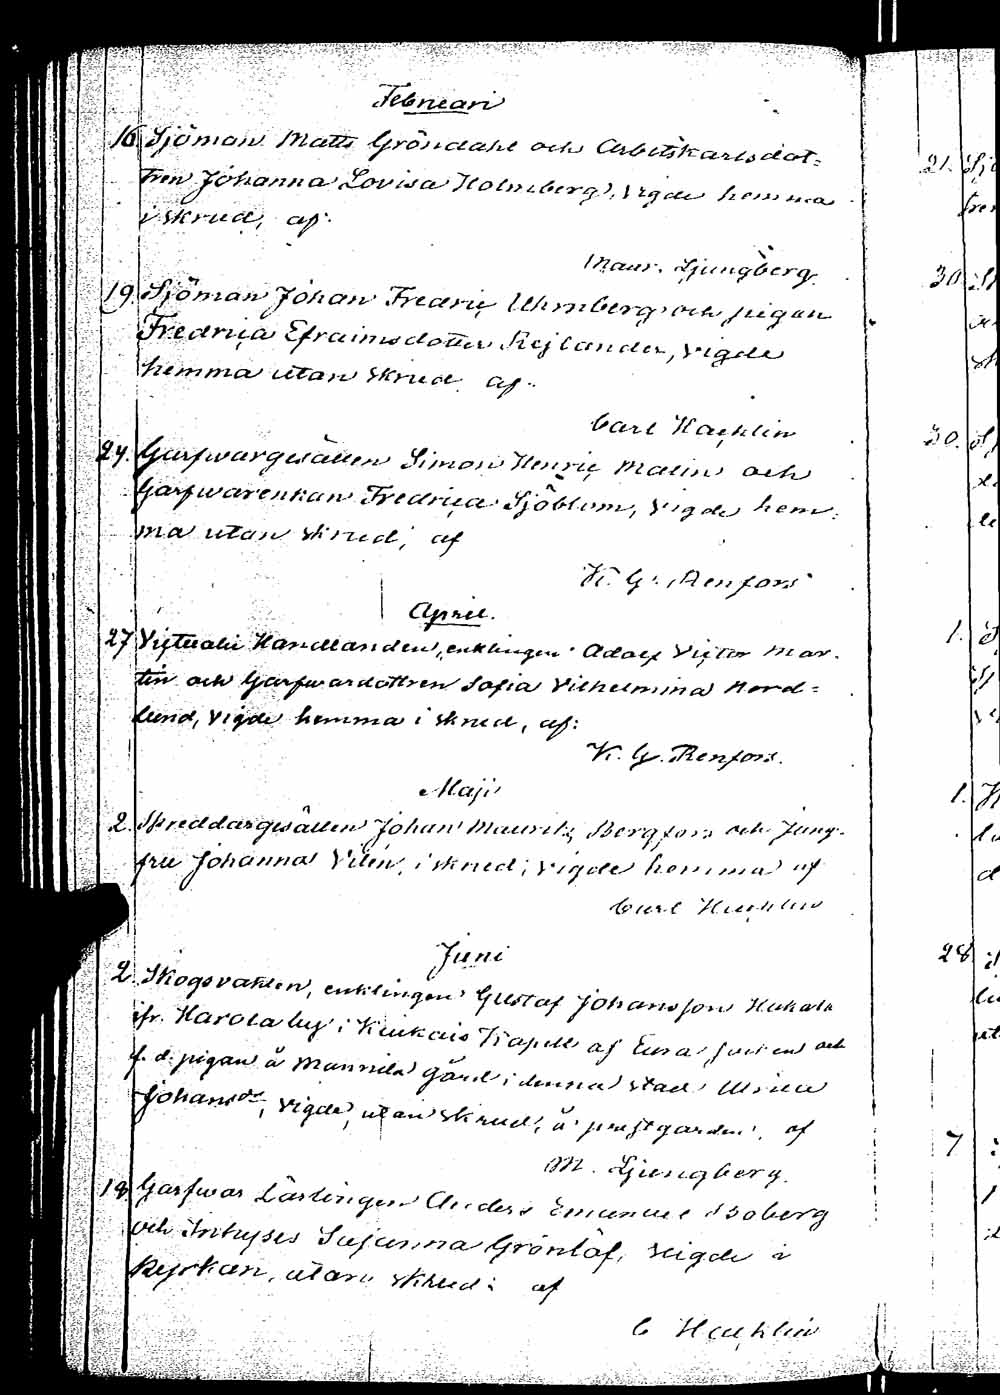 Februari
16. Sjöman Matts Gröndahl och Arbetskarlsdot=
tren Johanna Lovisa Holmberg, vigde hemma
i skrud, af.
Maur. Ljungberg.
19. Sjöman Johan Fredric Uhrnberg och pigan
Fredrica Efraimsdotter Rejlander, vigde
hemma utan skrud af.
Carl Hacklin
24. Garfwargesällen Simon Henric Malin och
Garfwarenkan Fredrica Sjöblom, vigde hem=
ma utan skrud; af
K. G. Renfors
April.
27 Victualie Handlanden, enklingen Adolf Victor Mar-
tin och Garfwardottren Sofia Vilhelmina Nord=
lund, vigde hemma i skrud, af:
K. G. Renfors.
Maji
2. Skreddargesällen Johan Mauritz Bergfors och Jung-
fru Johanna Vilén, i skrud; vigde hemma af
Carl Hacklin
Juni
2. Skogsvakten, enklingen Gustaf Johansson
ifr. Harola by i Kiukais Kapell af Eura socken och
f. d. pigan å Mannila gård i denna stad Ulrica
Johansdr, vigde, utan skrud, å prestgården, af
M. Ljungberg.
18. Garfwar Lärlingen Anders Emanuel Boberg
och Inhyses Susanna Grönlöf, vigde i
Kyrkan, utan skrud: af
C Hacklin
21. Sjö
30
30.
1.
1.
28
7